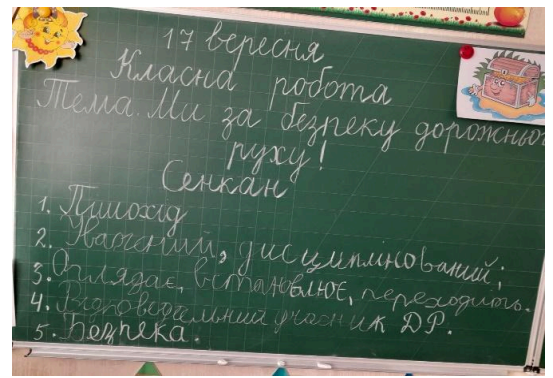 17 вересня
Класна робота
Тема. Ми за безпеку дорожньог
руху!
Сенкан
1. Пішохід
2. Уважний, дисциплінований;
3. Оглядає, встановлює, переходить.
4. Відповідальний учасник ДР.
5. Безпека.